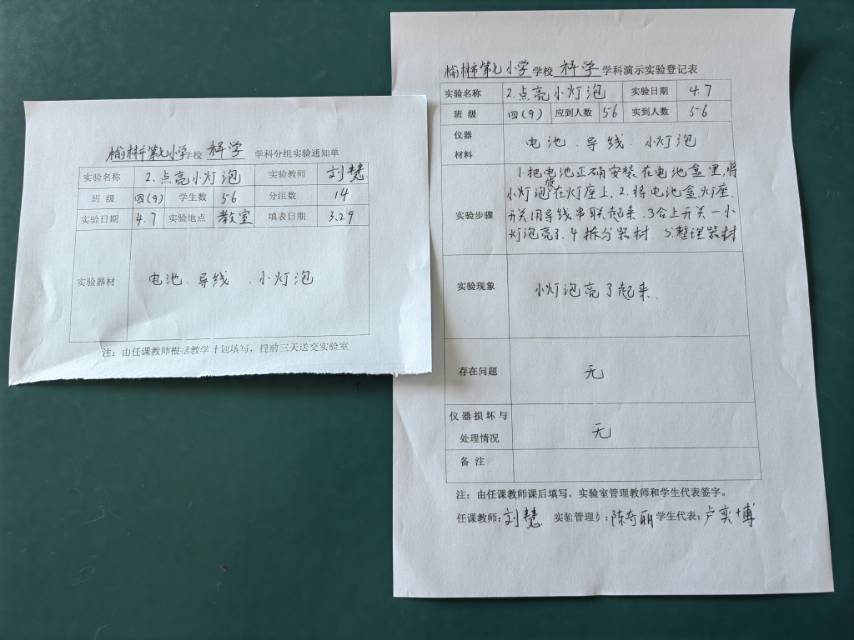 榆林市第九小学学校 科学 学科分组实验通知单
实验名称 2.点亮小灯泡 实验教师 刘慧
班 级 四(9) 学生数 56 分组数 14
实验日期 4.7 实验地点 教室 填表日期 3.29
实验器材 电池、导线、小灯泡
注：由任课教师根据教学计划填写，提前三天送交实验室
榆林市第九小学学校 科学 学科演示实验登记表
实验名称 2.点亮小灯泡 实验日期 4.7
班 级 四(9) 应到人数 56 实到人数 56
仪器
材料
电池、导线、小灯泡
实验步骤
1.把电池正确安装在电池盒里,将
小灯泡放在灯座上.2.将电池盒.灯座.
开关用导线串联起来.3.合上开关一小
灯泡亮了.4.拆分器材.5.整理器材
实验现象 小灯泡亮了起来.
存在问题 无
仪器损坏与
处理情况
无
备 注
注：由任课教师课后填写，实验室管理教师和学生代表签字。
任课教师:刘慧 实验管理员:陈奇丽 学生代表:卢奕博